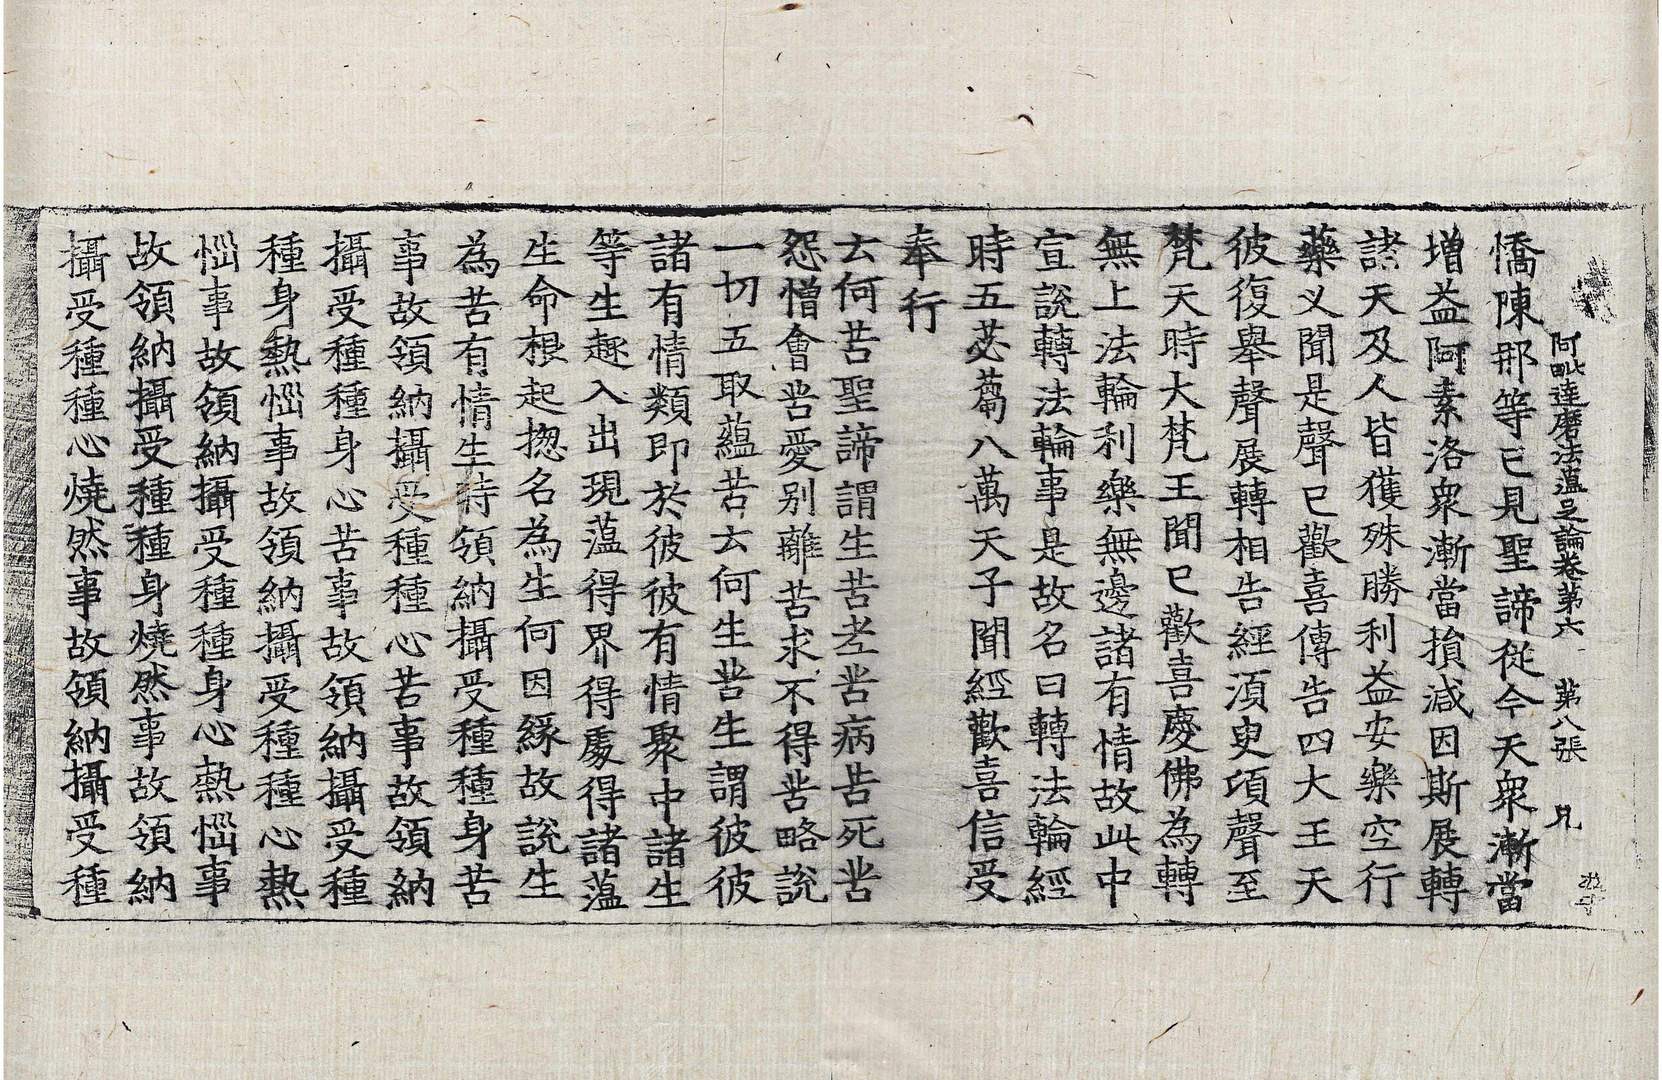 阿毗達磨法蘊足論卷第六 第八張 見
憍陳那等已見聖諦從今天衆漸當
增益阿素洛衆漸當損減因斯展轉
諸天及人皆獲殊勝利益安樂空行
藥义聞是聲已歡喜傳告四大王天
彼復舉聲展轉相告經湏臾頃聲至
梵天時大梵王聞已歡喜慶佛為轉
無上法輪利樂無邊諸有情故此中
宣說轉法輪事是故名曰轉法輪經
時五苾蒭八萬天子聞經歡喜信受
奉行
云何苦聖諦謂生苦老苦病苦死苦
怨憎會苦愛别離苦求不得苦略說
一切五取蘊苦云何生苦生謂彼彼
諸有情類即於彼彼有情聚中諸生
等生趣入出現蘊得界得處得諸蘊
生命根起揔名為生何因緣故說生
為苦有情生時領納攝受種種身苦
事故領納攝受種種心苦事故領納
攝受種種身心苦事故領納攝受種
種身熱惱事故領納攝受種種心熱
惱事故領納攝受種種身心熱惱事
故領納攝受種種身燒然事故領納
攝受種種心燒然事故領納攝受種